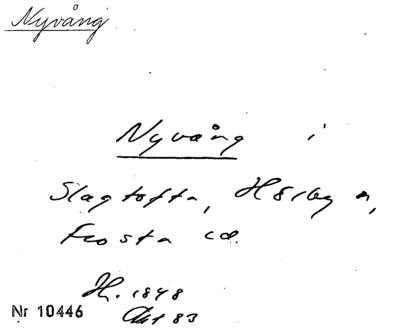 Nyvång
Nyvång i
Slagtofta, Hörby s,
Frosta
H. 1848
Akt 83
Nr 10446